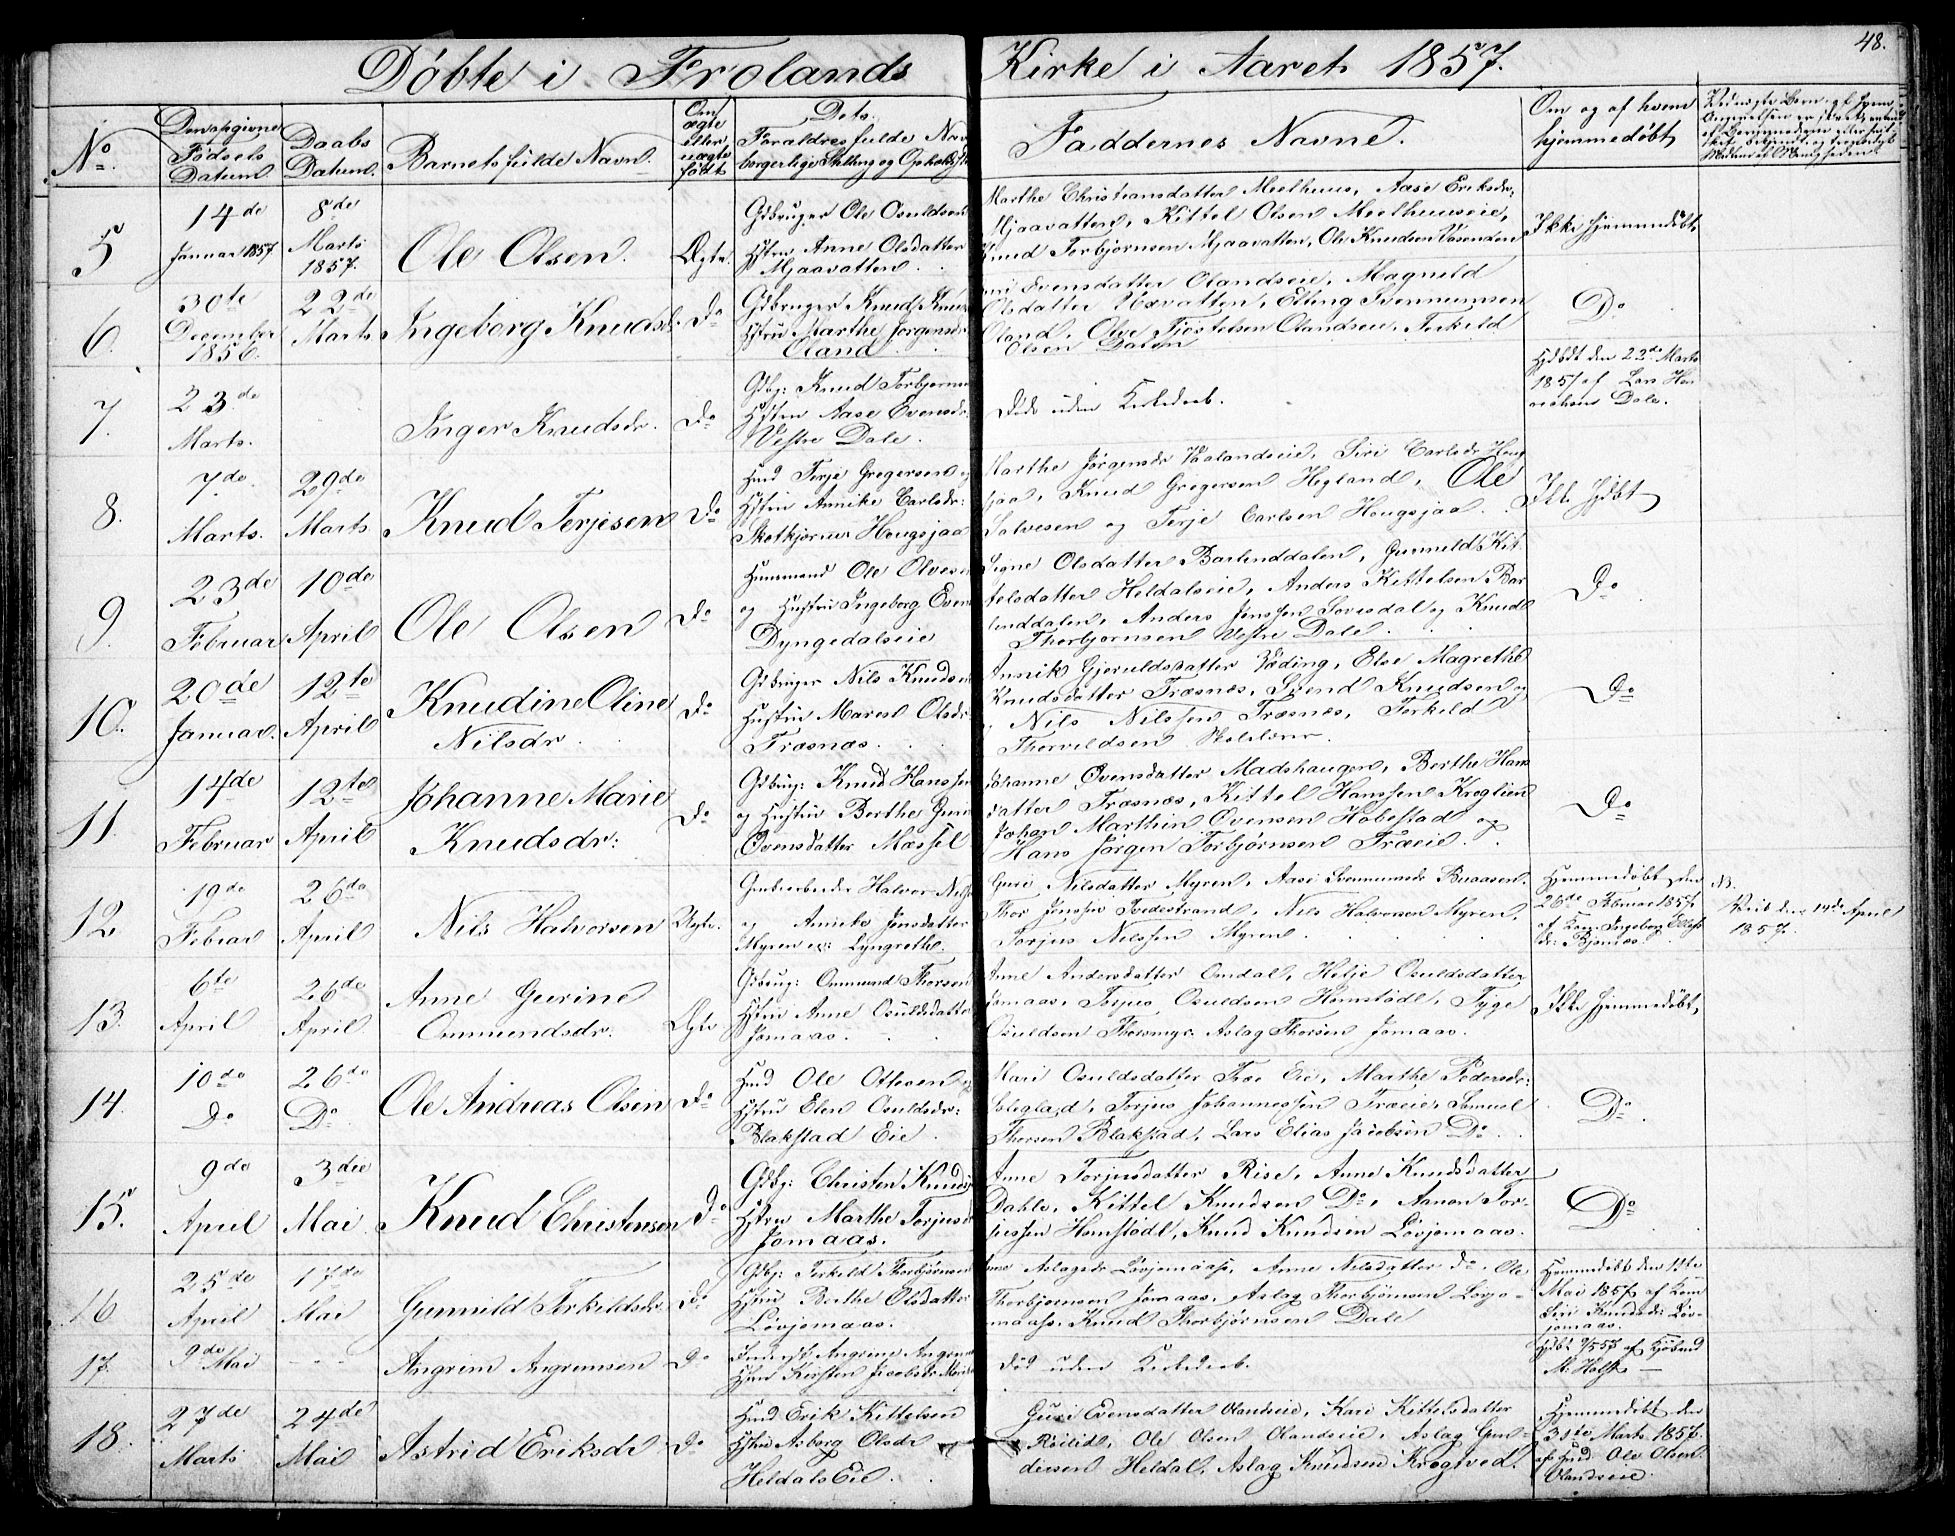 48.
Døbte i Frolands Kirke i Aaret 1857.
No.
Den opgivne Fødsels Datum
Daabs Datum.
Barnets fulde Navn.
Om ægte eller uægte født
Dets Forældres fulde Navn borgerlige Stilling og Opholdssted
Faddernes Navne.
Om og af hvem hjemmedøbt
5
14de Januar 1857.
8de Marts 1857.
Ole Olsen.
Ægte.
Gdbruger Ole Osuldsen
Hstru Anne Olsdatter
Mjaavatten.
Marthe Christiansdatter Meelhuus, Aase Eriksdr:
Mjaavatten, Kittel Olsen Meelhuuseie,
Knud Torbjørnsen Mjaavatten, Ole Knudsen Vasenden
Ikke hjemmedøbt,
6.
30te December 1856.
22de Marts
Ingeborg Knudsdr.
Do
Gdbruger Knud Knuds
Hstru Marthe Jørgensdr
Oland.
Svensdatter Olandseie, Magnild
Olsdatter Uxvatten, Elling Svennumsen
Oland, Olve Tjøstelsen Olandseie, Terkild
Olsen Dalen
Do
7.
23de Marts.
Inger Knudsdr.
Do
Gdbg: Knud Torbjørns
Hstru Aase Evensdr:
Vestre Dale.
Døde uden Kirkedaab.
Hjdøbt den 23de Marts
1857 af Lars Hen
richsen Dale.
8.
7de Marts.
29de Marts
Knud Terjesen
Do
Hmd Terje Gregersen og
Hstru Annike Carlsdr:
Skotkjørner Hougsjaa
Marthe Jørgensdr Vaalandseie, Siri Carlsdr Houg
sjaa, Knud Gregersen Hegland, Ole
Salvesen og Terje Carlsen Hougsjaa.
Ikke hjdbt
9.
23de Februar
10de April
Ole Olsen
Do
Huusmand Ole Olvesen
og Hustru Ingeborg Even
Dyngedalseie
Signe Olsdatter Barlinddalen, Gunnild Kit
telsdatter Heldalseie, Anders Kittelsen Bar
linddalen, Anders Jenssen Lovisdal og Knud
Thorbjørnsen Vestre Dale.
Do
10.
20de Januar.
12te April
Knudine Oline
Nilsdr.
Do
Gdbruger Nils Knudsen
Hustru Maren Olsdr
Træsnæs.
Annik Gjeruldsdatter Væding, Else Magrethe
Knudsdatter Træsnæs, Svend Knudsen og
Nils Nilssen Træsnæs, Terkild
Thorvildsen Skolelærer.
Do
11.
14de Februar
12te April
Johanne Marie
Knudsdr:
Do
Gdbrug: Knud Hanssen
og Hustru Berthe Guri
Ovensdatter Mæssel
Johanne Ovensdatter Madshaugen, Berthe Hans
datter Træsnæs, Kittel Hanssen Kroglien
Johan Marthin Ovensen Habestad og
Hans Jørgen Torbjørnsen Træeie.
Do
12
19de Febuar
26de April
Nils Halvorsen
Uægte.
Grubearbeider Halvor Nilss
og Annike Jensdatter
Myren Lyngrothe.
Guri Nilsdatter Myren, Aase Svennumsdr Buaasen.
Thor Jenssen Tvedestrand, Nils Halvorsen Myren,
Torjus Nilssen Myren.
Hjemmedøbt den
26de Februar 1857
af Kone Ingeborg
dr: Bjørnæs
N.
den 14de April
1857.
13.
6te April
26de April
Anne Gurine
Ommundsdr.
Ægte
Gdbrug: Ommund Thorsen
Hstru Anne Osuldsdatter
Jomaas.
Anne Andersdatter Omdal, Helje Osuldsdatter
Jomaas, Torjus Osuldsen Homstødl, Tyge
Osuldsen Thorsmyr, Aslag Thorsen Jomaas.
Ikke hjemmedøbt,
14.
10de Do
26de Do
Ole Andreas Olsen
Do
Hmd Ole Ottesen og
Hstru Elen Osuldsdr:
Blakstad Eie
Mari Osuldsdatter Træ Eie, Marthe Pedersdr:
Soleglad, Torjus Johannessen Træeie, Samuel
Thorsen Blakstad, Lars Elias Jacobsen Do
Do
15.
9de April
3die Mai
Knud Christensen
Do
Gdbg: Christen Knuds
Hstru Marthe Torjusdr
Jomaas.
Anne Torjusdatter Rise, Anne Knudsdatter
Dahle, Kittel Knudsen Do, Aanon Tor-
jussen Homstødl, Knud Knudsen Løvjomaas.
Do
16
25de April
17de Mai
Gunnild Terkildsdr
Do
Gdbg: Terkild Thorbjørnsen
Hstru Berthe Olsdatter
Løvjomaas.
Aslagsdr Løvjomaas, Anne Nilsdatter do. Ole
Thorbjørnsen Jomaas, Aslag Thorbjørnsen Løvjo-
maas, Knud Thorbjørnsen Dale
Hjemmedøbt den 12te
Mai 1857 af Kone
Siri Knudsdr: Løv-
jomaas.
17.
9de Mai
Angrim Angrimsen
Do
Angrim Angrims
Hstru Kirsten Jacobsdr
Død uden Kirkedaab.
Hjdbt 9/5 57 af
M. Holst
18.
27de Marts
24de Mai
Astrid Eriksdr
Do
Hmd Erik Kittelsen
Hstru Asborg Olsdr
Heldals Eie.
Guri Evensdatter Olandseie, Kari Kittelsdatter
Røilid, Ole Olsen Olandseie, Aslag Gun-
dersen Heldal, Aslag Knudsen Krogtved.
Hjemmedøbt den
31te Marts 1857.
af Hmd Ole Olsen
Olandseie.